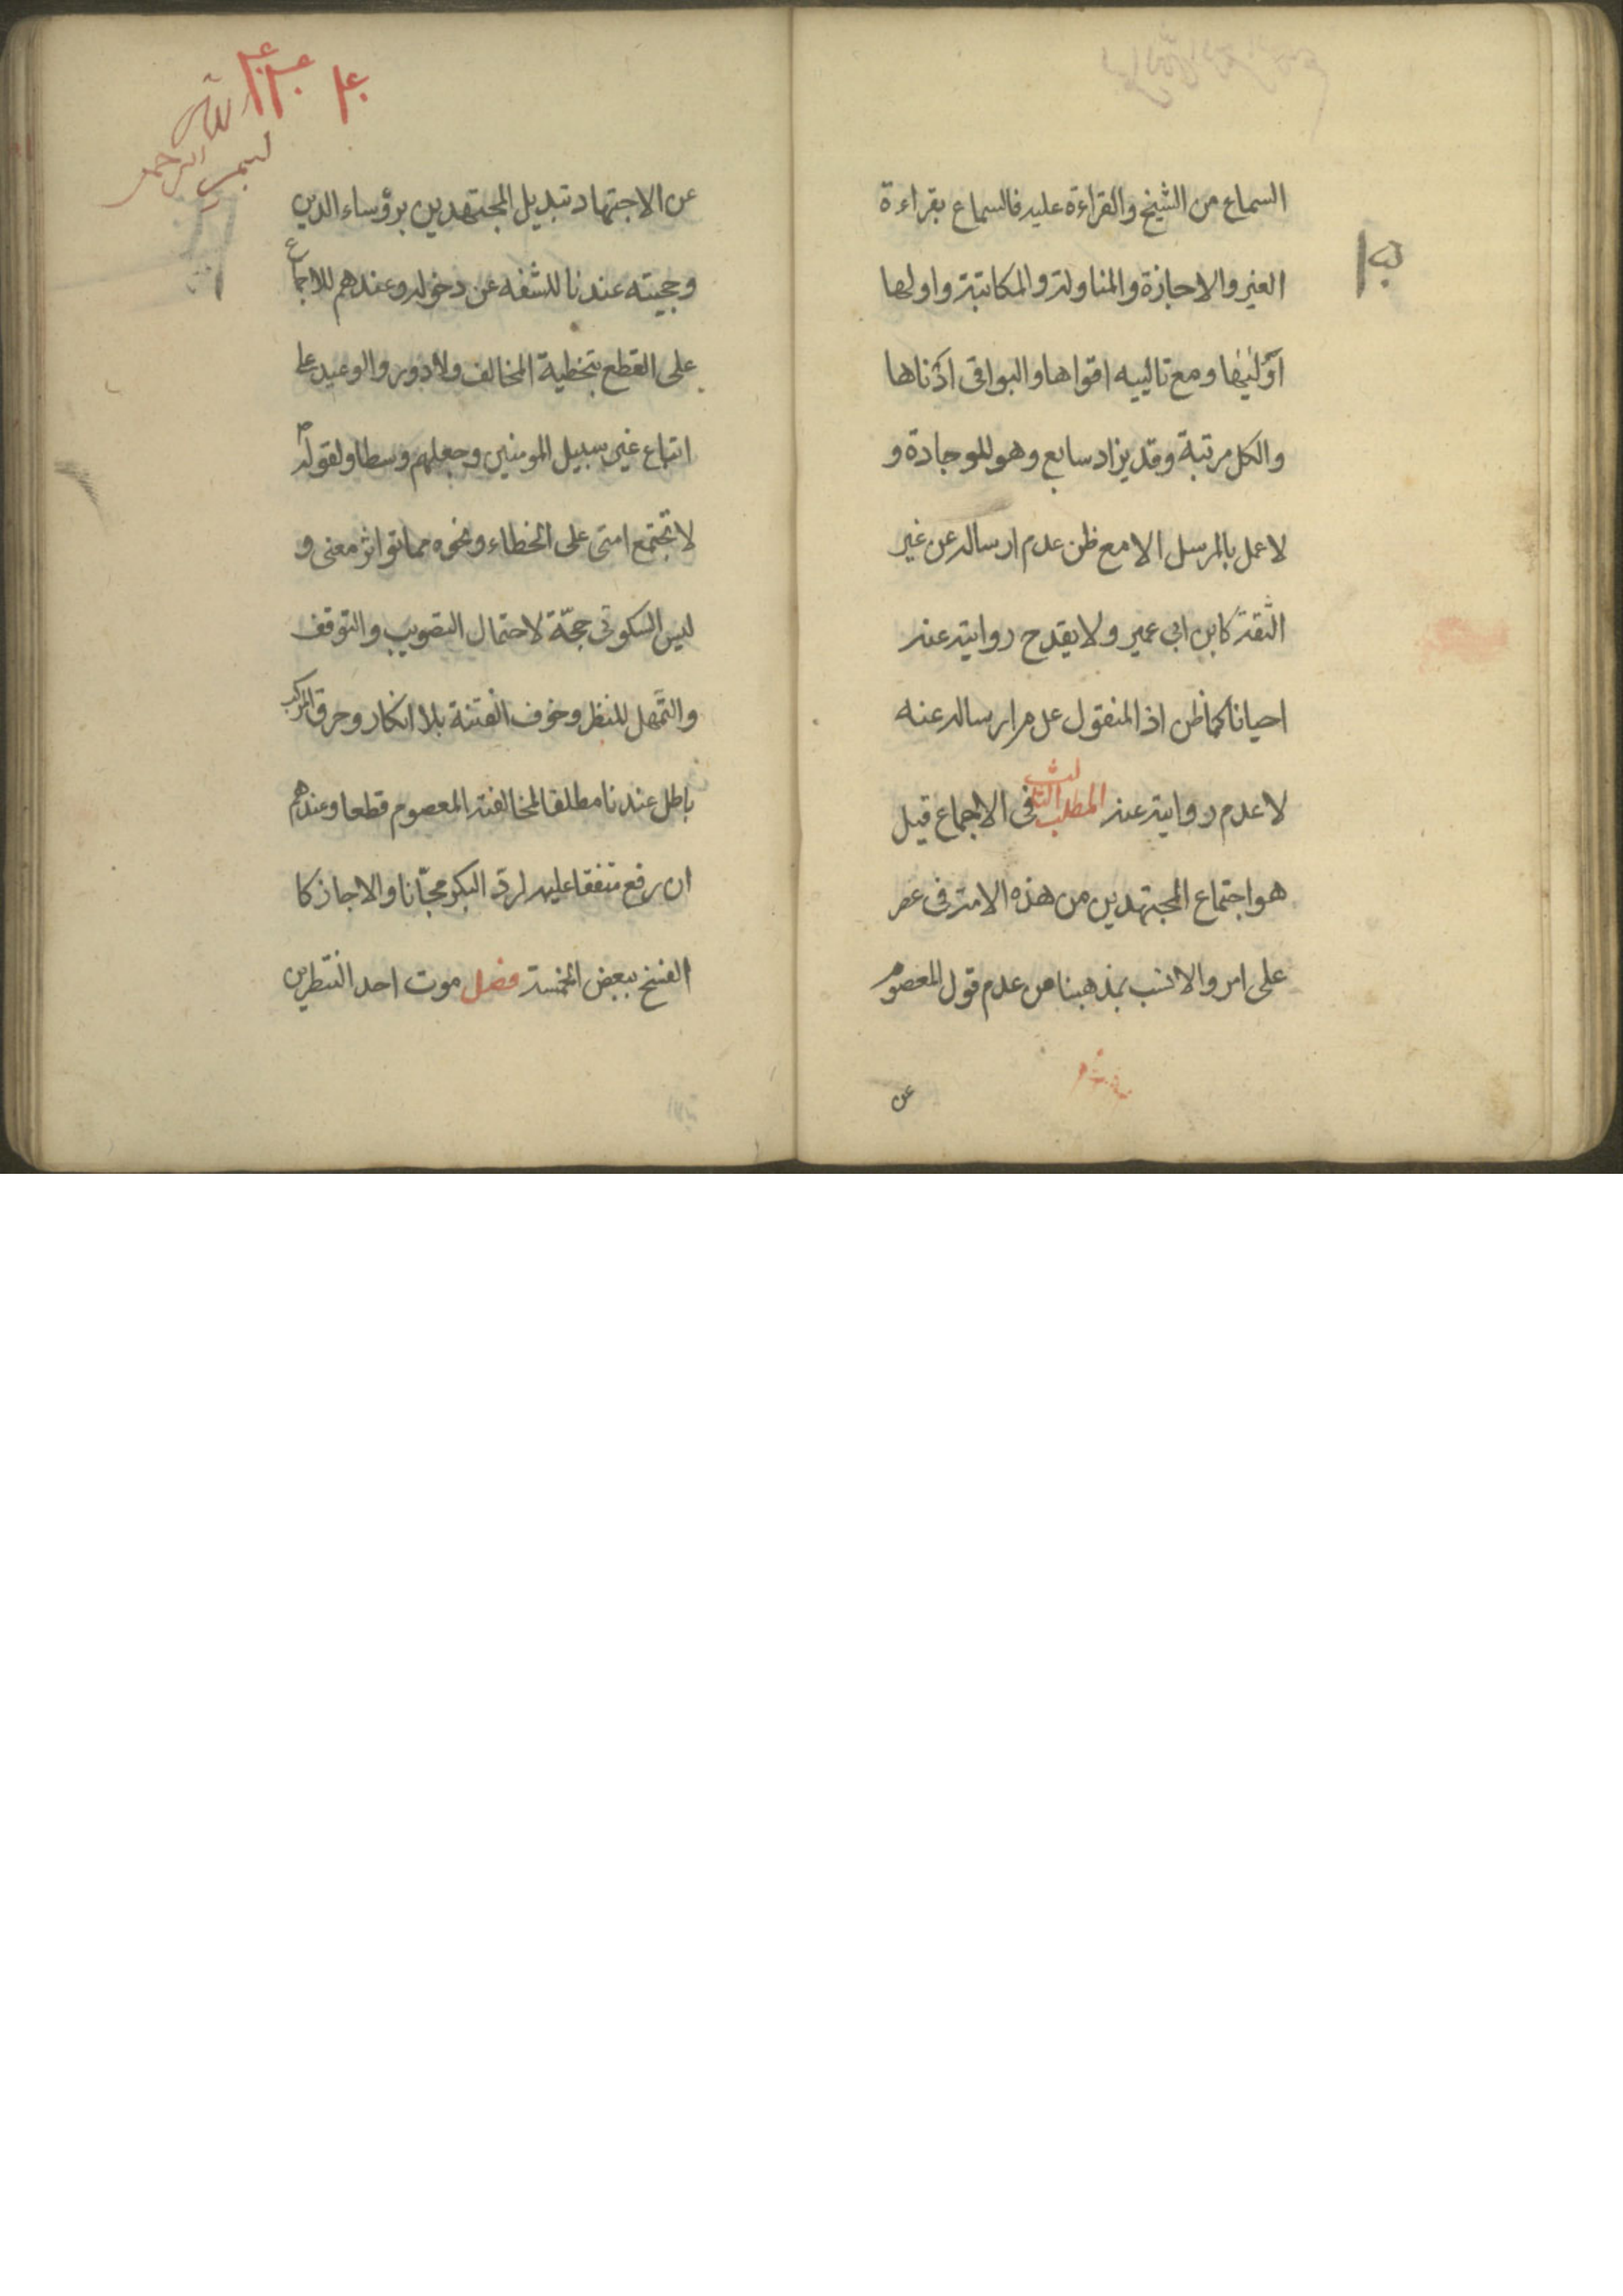 السماع من الشيخ والقراءة عليه فالسماع بقراءة
الغير والاجازة والمناولة والمكاتبة واولها
اوليٰها ومع تالييه اقواها والبواقى ادناها
والكل مرتبة وقد يزاد سابع وهو للوجادة و
لا عمل بالمرسل الا مع ظن عدم ارساله عن غير
الثقة كابن ابى عمير ولا يقدح روايته عنه
احيانا كما ظن اذ المنقول عدم ارساله عنه
لا عدم روايته عنه المطلب الثالث فى الاجماع قيل
هو اجتماع المجتهدين من هذه الامة فى عصر
على امر والانسب بمذهبنا من عدم قول المعصوم
عن
بسم الله الرحمن
عن الاجتهاد تبديل المجتهدين برؤساء الدين
وحجيته عندنا لكشفه عن دخوله وعندهم للاجماع
على القطع بتخطية المخالف ولا دور والوعيد على
اتباع غير سبيل المومنين وجعلهم وسطا ولقوله
لا تجتمع امتى على الخطاء ونحوه مما تواتر معنى و
ليس السكوتى حجّة لاحتمال التصويب والتوقف
والتمهل للنظر وخوف الفتنة بلا انكار وخرق المركب
باطل عندنا مطلقا لمخالفته المعصوم قطعا وعندهم
ان رفع متفقا عليه لرد البكر مجّانا والا جاز كا
الفسخ ببعض الخمسة فصل موت احد الشطرين